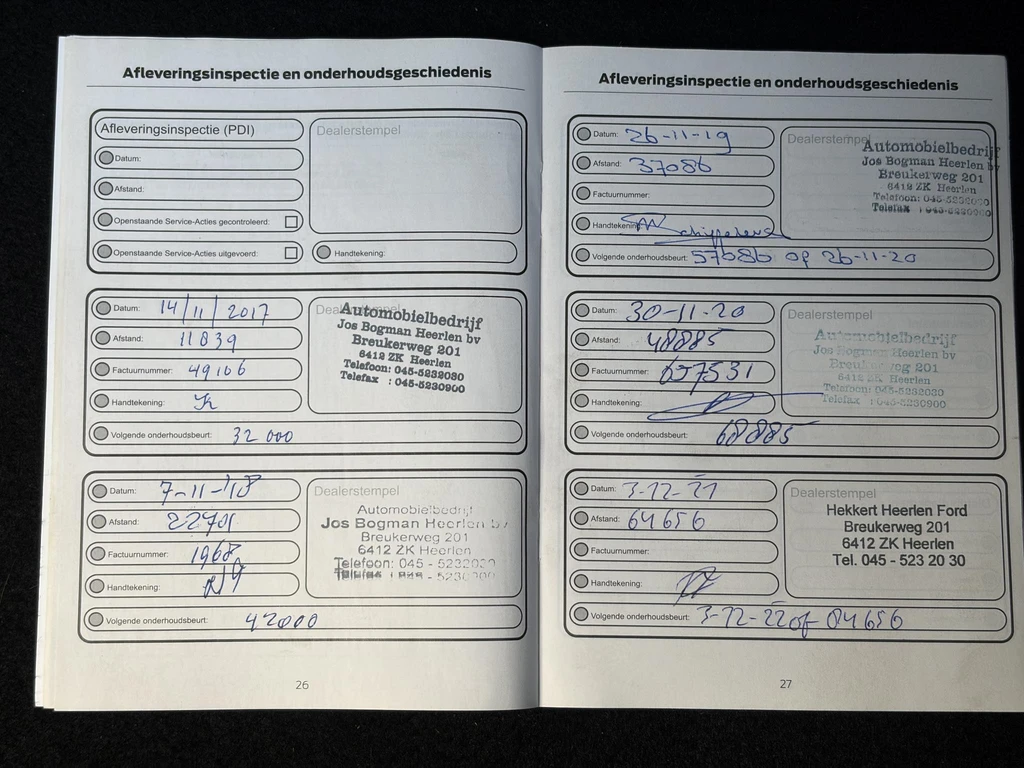 Afleveringsinspectie en onderhoudsgeschiedenis
Afleveringsinspectie (PDI)
Datum:
Afstand:
Openstaande Service-Acties gecontroleerd:
Openstaande Service-Acties uitgevoerd:
Dealerstempel
Handtekening:
Datum: 14/11/2017
Afstand: 11839
Factuurnummer: 49106
Handtekening:
Volgende onderhoudsbeurt: 32 000
Dealerstempel
Automobielbedrijf
Jos Bogman Heerlen bv
Breukerweg 201
6412 ZK Heerlen
Telefoon: 045-5232030
Telefax : 045-5230900
Datum: 7-11-'18
Afstand: 22701
Factuurnummer: 1968
Handtekening:
Volgende onderhoudsbeurt: 42000
Dealerstempel
Automobielbedrijf
Jos Bogman Heerlen bv
Breukerweg 201
6412 ZK Heerlen
Telefoon: 045 - 5232030
Telefax : 045 - 5230900
26
Afleveringsinspectie en onderhoudsgeschiedenis
Datum: 26-11-19
Afstand: 37086
Factuurnummer:
Handtekening:
Volgende onderhoudsbeurt: 57086 op 26-11-20
Dealerstempel
Automobielbedrijf
Jos Bogman Heerlen bv
Breukerweg 201
6412 ZK Heerlen
Telefoon: 045-5232030
Telefax : 045-5230900
Datum: 30-11-20
Afstand: 48885
Factuurnummer: 657531
Handtekening:
Volgende onderhoudsbeurt: 68885
Dealerstempel
Automobielbedrijf
Jos Bogman Heerlen bv
Breukerweg 201
6412 ZK Heerlen
Telefoon: 045-5232030
Telefax : 045-5230900
Datum: 3-12-21
Afstand: 64656
Factuurnummer:
Handtekening:
Volgende onderhoudsbeurt: 3-12-22 of 84656
Dealerstempel
Hekkert Heerlen Ford
Breukerweg 201
6412 ZK Heerlen
Tel. 045 - 523 20 30
27